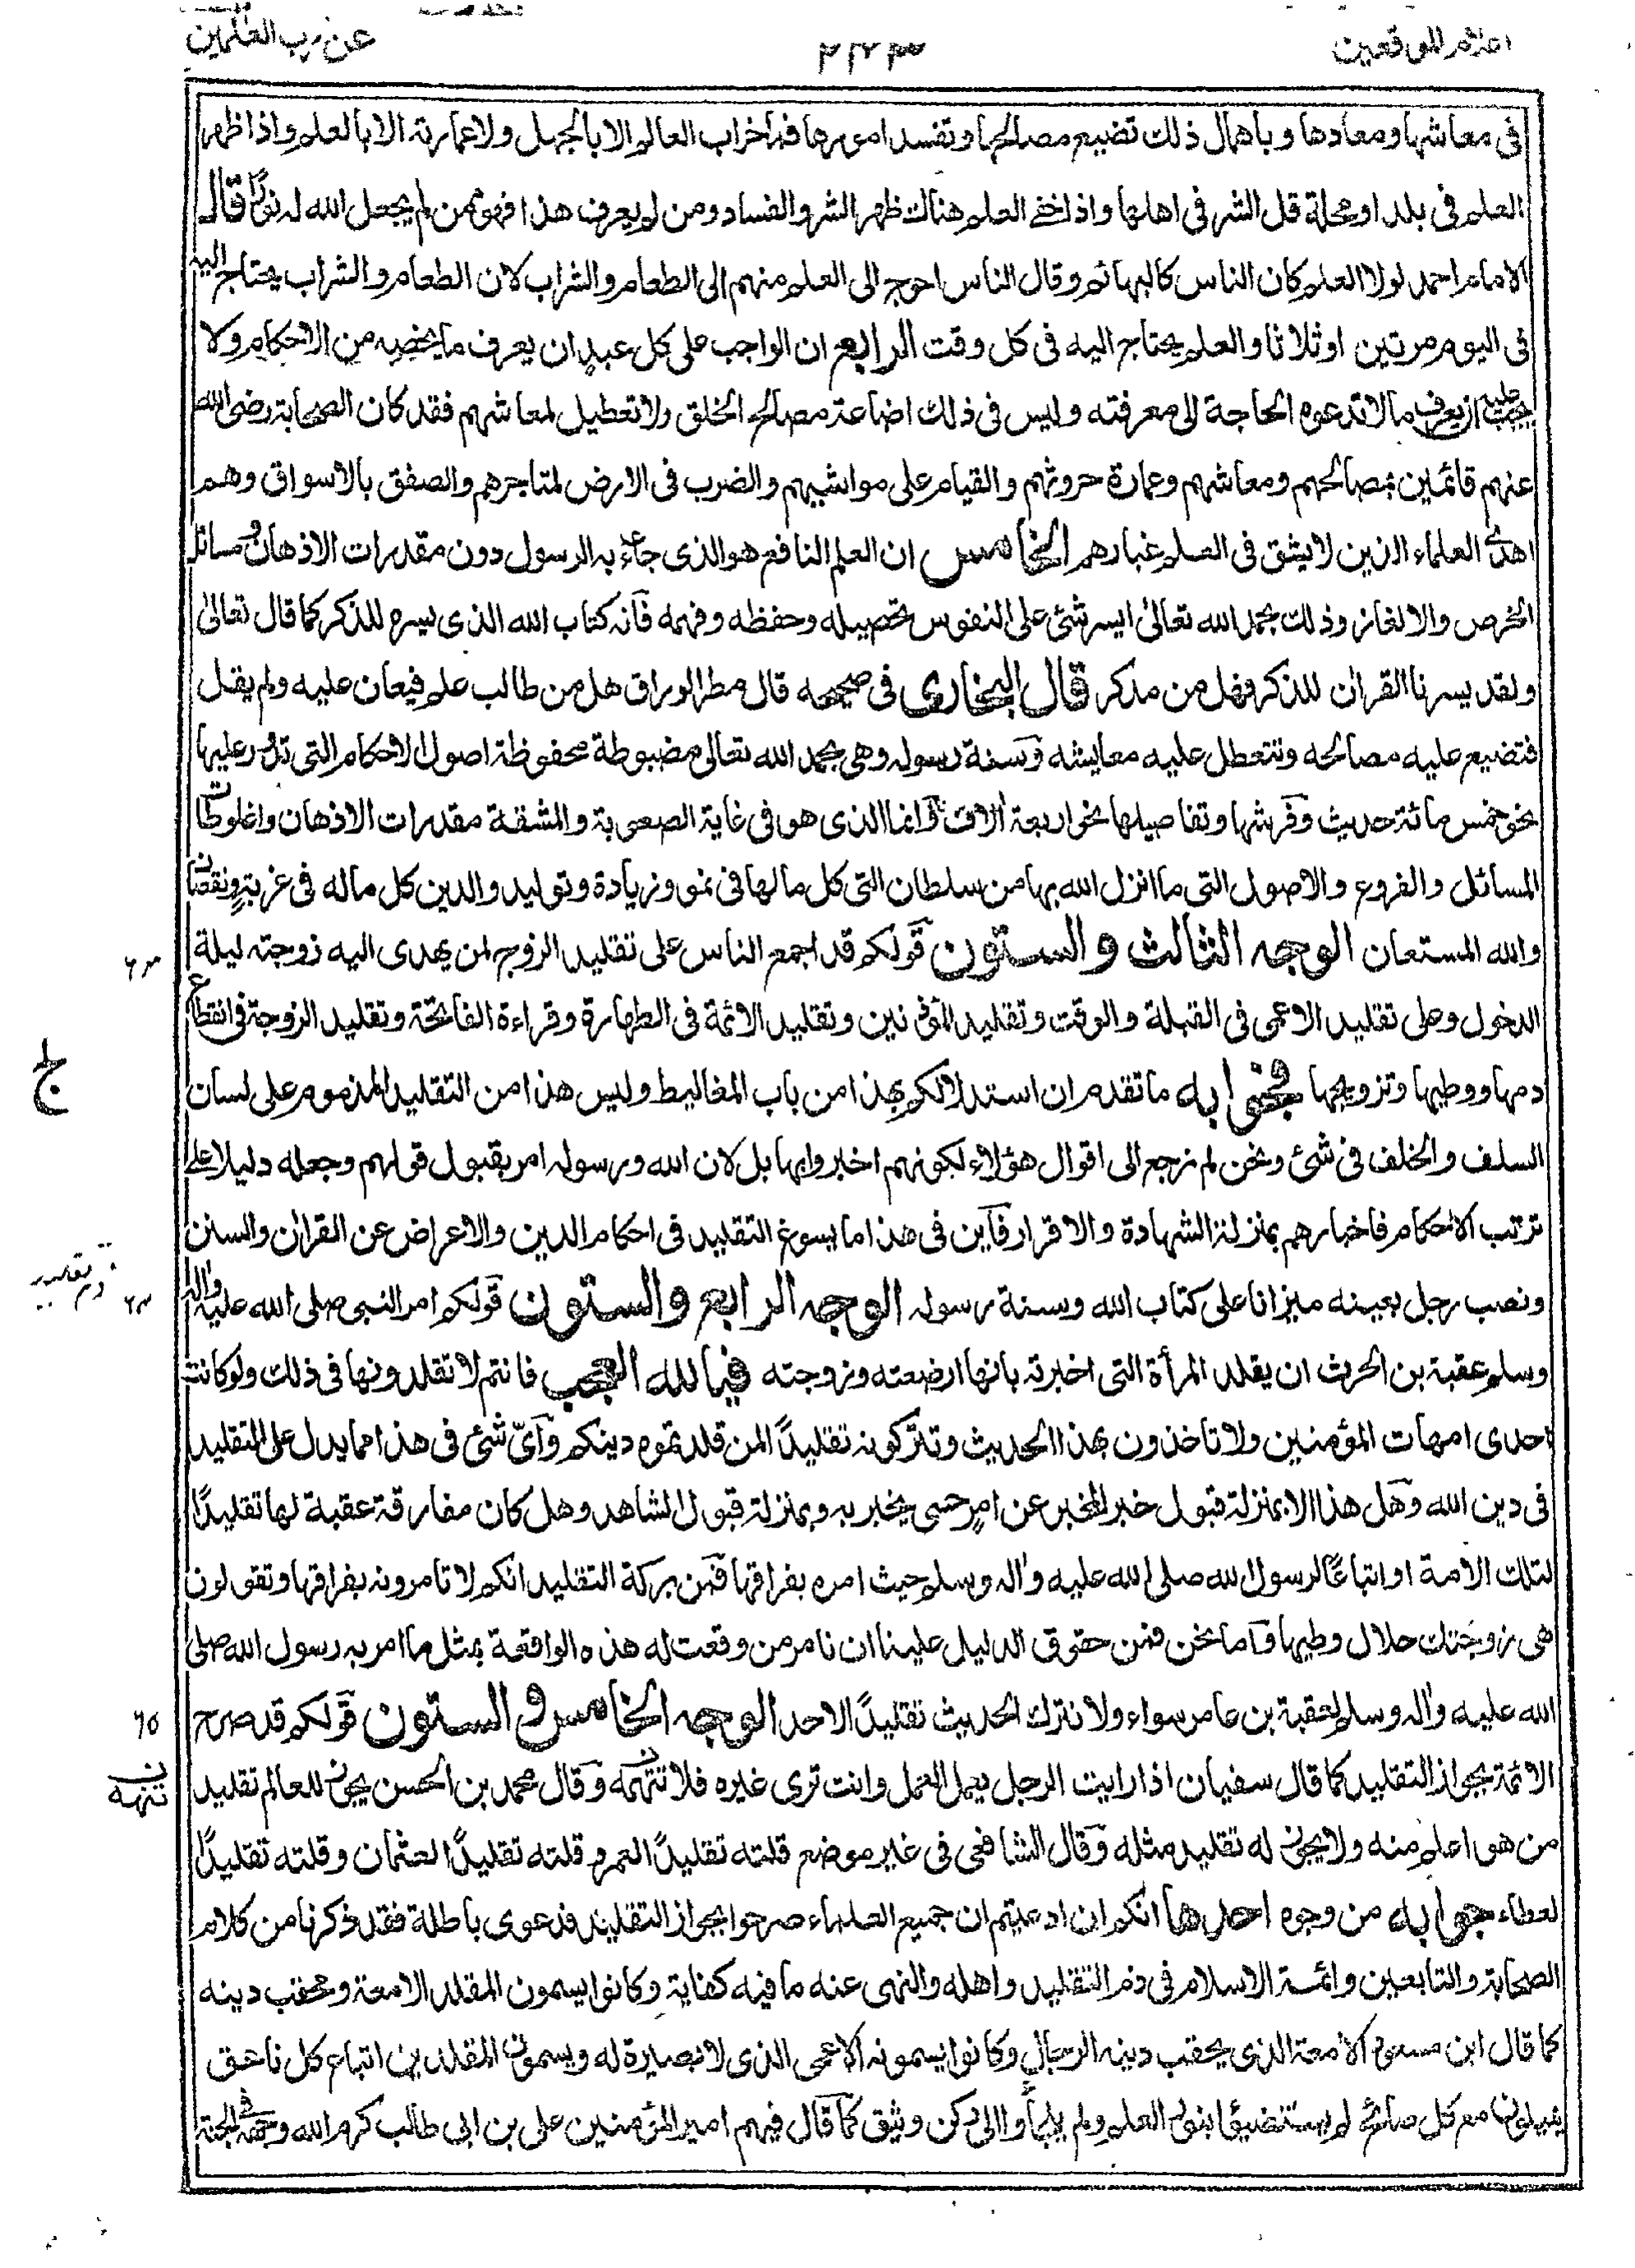 اعلام الموقعين
٢٢٣
عن رب العلمين
فى معاشها ومعادها وباهمال ذلك تضييع مصالحها وتفسد امورها فما خراب العالم الا بالجهل ولا عمارته الا بالعلم واذا ظهر
العلم فى بلد او محلة قل الشر فى اهلها واذا خفى العلم هناك ظهر الشر والفساد ومن لم يعرف هذا فهو ممن لم يجعل الله له نورًا قال
الامام احمد لولا العلم كان الناس كالبهائم وقال الناس احوج الى العلم منهم الى الطعام والشراب لان الطعام والشراب يحتاج اليه
فى اليوم مرتين او ثلاثا والعلم يحتاج اليه فى كل وقت الرابع ان الواجب على كل عبدٍ ان يعرف ما يخصه من الاحكام ولا
يجب عليه ان يعرف ما لا تدعوه الحاجة الى معرفته وليس فى ذلك اضاعة مصالح الخلق ولا تعطيل لمعاشهم فقد كان الصحابة رضى الله
عنهم قائمين بمصالحهم ومعاشهم وعمارة حروثهم والقيام على مواشيهم والضرب فى الارض لمتاجرهم والصفق بالاسواق وهم
اهدى العلماء الذين لا يشق فى العلم غبارهم الخامس ان العلم النافع هو الذى جاء به الرسول دون مقدرات الاذهان ومسائل
الخرص والالغاز وذلك بحمد الله تعالى ايسر شئ على النفوس تحصيله وحفظه وفهمه فانه كتاب الله الذى يسره للذكر كما قال تعالى
ولقد يسرنا القران للذكر فهل من مدكر قال البخارى فى صحيحه قال مطر الوراق هل من طالب علم فيعان عليه ولم يقل
فتضيع عليه مصالحه وتتعطل عليه معايشه وسنة رسوله وهى بحمد الله تعالى مضبوطة محفوظة اصول الاحكام التى تدور عليها
نحو خمس مائة حديث وفرشها وتفاصيلها نحو اربعة الاف وانما الذى هو فى غاية الصعوبة والمشقة مقدرات الاذهان واغلوطات
المسائل والفروع والاصول التى ما انزل الله بها من سلطان التى كل ما لها فى نمو وزيادة وتوليد والدين كل ماله فى غربةٍ ونقصان
والله المستعان الوجه الثالث والستون قولكم قد اجمع الناس على تقليد الزوج لمن يهدى اليه زوجته ليلة
٦٣
الدخول وعلى تقليد الاعمى فى القبلة والوقت وتقليد المؤذنين وتقليد الائمة فى الطهارة وقراءة الفاتحة وتقليد الزوجة فى انقطاع
دمها ووطيها وتزويجها فجوابه ما تقدم ان استدلالكم بهذا من باب المغاليط وليس هذا من التقليد المذموم على لسان
ج
السلف والخلف فى شئ ونحن لم نرجع الى اقوال هؤلاء لكونهم اخبروا بها بل لان الله ورسوله امر بقبول قولهم وجعله دليلا على
ترتب الاحكام فاخبارهم بمنزلة الشهادة والاقرار فاين فى هذا ما يسوغ التقليد فى احكام الدين والاعراض عن القران والسنن
ونصب رجل بعينه ميزانا على كتاب الله وسنة رسوله الوجه الرابع والستون قولكم امر النبى صلى الله عليه واله
٦٤
وسلم عقبة بن الحرث ان يقلد المرأة التى اخبرته بانها ارضعته وزوجته فيالله العجب فانتم لا تقلدونها فى ذلك ولو كانت
احدى امهات المؤمنين ولا تاخذون بهذا الحديث وتتركونه تقليدًا لمن قلدتموه دينكم واىّ شئ فى هذا مما يدل على التقليد
فى دين الله وهل هذا الا بمنزلة قبول خبر المخبر عن امرٍ حسى يخبر به وبمنزلة قبول الشاهد وهل كان مفارقة عقبة لها تقليدًا
لتلك الامة او اتباعًا لرسول الله صلى الله عليه واله وسلم حيث امره بفراقها فمن بركة التقليد انكم لا تامرونه بفراقها وتقولون
هى زوجتك حلال وطيها واما نحن فمن حقوق الدليل علينا ان نامر من وقعت له هذه الواقعة بمثل ما امر به رسول الله صلى
الله عليه واله وسلم لعقبة بن عامر سواء ولا نترك الحديث تقليدًا لاحد الوجه الخامس والستون قولكم قد صرح
٦٥
الائمة بجواز التقليد كما قال سفيان اذا رايت الرجل يعمل العمل وانت ترى غيره فلا تتهمه وقال محمد بن الحسن يجوز للعالم تقليد
تنهه ن
من هو اعلم منه ولا يجوز له تقليد مثله وقال الشافعى فى غير موضع قلته تقليدًا لعمر وقلته تقليدًا لعثمان وقلته تقليدًا
لعطاء جوابه من وجوه احدها انكم ان ادعيتم ان جميع العلماء صرحوا بجواز التقليد فدعوى باطلة فقد ذكرنا من كلام
الصحابة والتابعين وائمة الاسلام فى ذم التقليد واهله والنهى عنه ما فيه كفاية وكانوا يسمون المقلد الامعة ومحقب دينه
كما قال ابن مسعود الامعة الذى يحقب دينه الرجال وكانوا يسمونه الاعمى الذى لا بصيرة له ويسمون المقلدين اتباع كل ناعق
يميلون مع كل صائح لم يستضيؤا بنور العلم ولم يلجأوا الى ركن وثيق كما قال فيهم امير المؤمنين على بن ابى طالب كرم الله وجهه فى الجنة